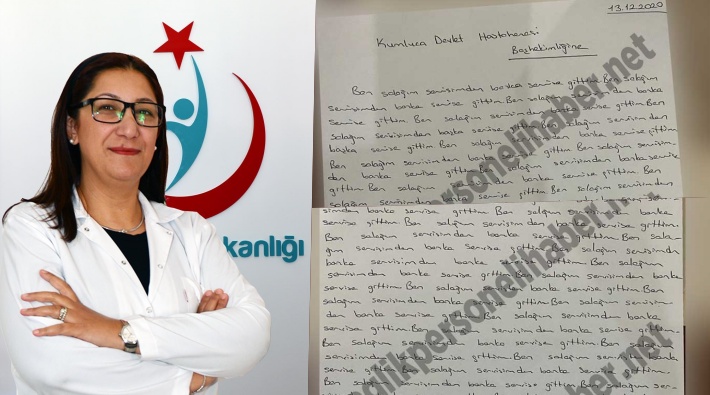 kanlığı
13.12.2020
Kumluca Devlet Hastahanesi
Başhekimliğine
Ben salağım servisimden başka servise gittim. Ben salağım
servisimden başka servise gittim. Ben salağım servisimden başka
servise gittim. Ben salağım servisimden başka servise gittim. Ben
salağım servisimden başka servise gittim. Ben salağım servisimden
başka servise gittim. Ben salağım servisimden başka servise gittim.
Ben salağım servisimden başka servise gittim. Ben salağım servisim-
den başka servise gittim. Ben salağım servisimden başka servise
gittim. Ben salağım servisimden başka servise gittim. Ben
salağım servisimden başka servise gittim. Ben salağım servisimden
servise gittim. Ben salağım servisimden başka
servise gittim. Ben salağım servisimden başka servise gittim.
Ben salağım servisimden başka servise gittim. Ben sala-
ğım servisimden başka servise gittim. Ben salağım servisimden
başka servisimden başka servise gittim. Ben salağım
servisimden başka servise gittim. Ben salağım servisimden başka
servise gittim. Ben salağım servisimden başka servise gittim. Ben
salağım servisimden başka servise gittim. Ben salağım servisim-
den başka servise gittim. Ben salağım servisimden başka
servise gittim. Ben salağım servisimden başka servise gittim.
Ben salağım servisimden başka servise gittim. Ben salağım
servisimden başka servise gittim. Ben salağım servisimden başka
servise gittim. Ben salağım servisimden başka servise gittim.
Ben salağım servisimden başka servise gittim. Ben salağım ser-